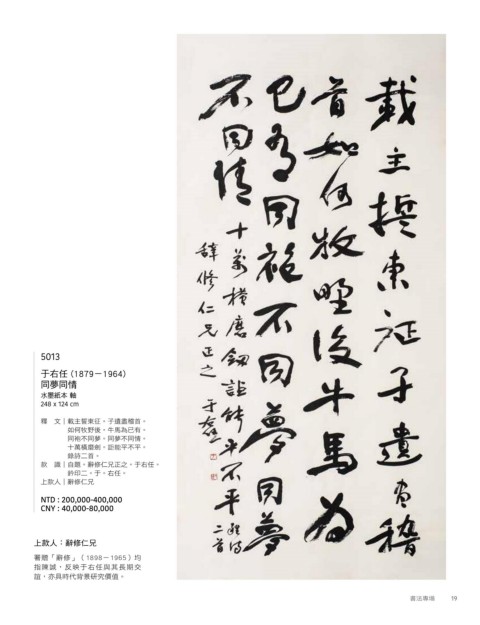 載主誓東征孑遺盡稽
首如何牧野後牛馬為
已有同袍不同夢同夢
不同情
十萬橫磨劍詎能平不平 錄詩
二首
辭修仁兄正之 于右任
5013
于右任（1879－1964）
同夢同情
水墨紙本 軸
248 x 124 cm
釋　文｜載主誓東征。孑遺盡稽首。
如何牧野後。牛馬為已有。
同袍不同夢。同夢不同情。
十萬橫磨劍。詎能平不平。
錄詩二首。
款　識｜自題。辭修仁兄正之。于右任。
鈐印二。于。右任。
上款人｜辭修仁兄
NTD : 200,000-400,000
CNY : 40,000-80,000
上款人：辭修仁兄
署贈「辭修」（1898－1965）均
指陳誠，反映于右任與其長期交
誼，亦具時代背景研究價值。
書法專場　19